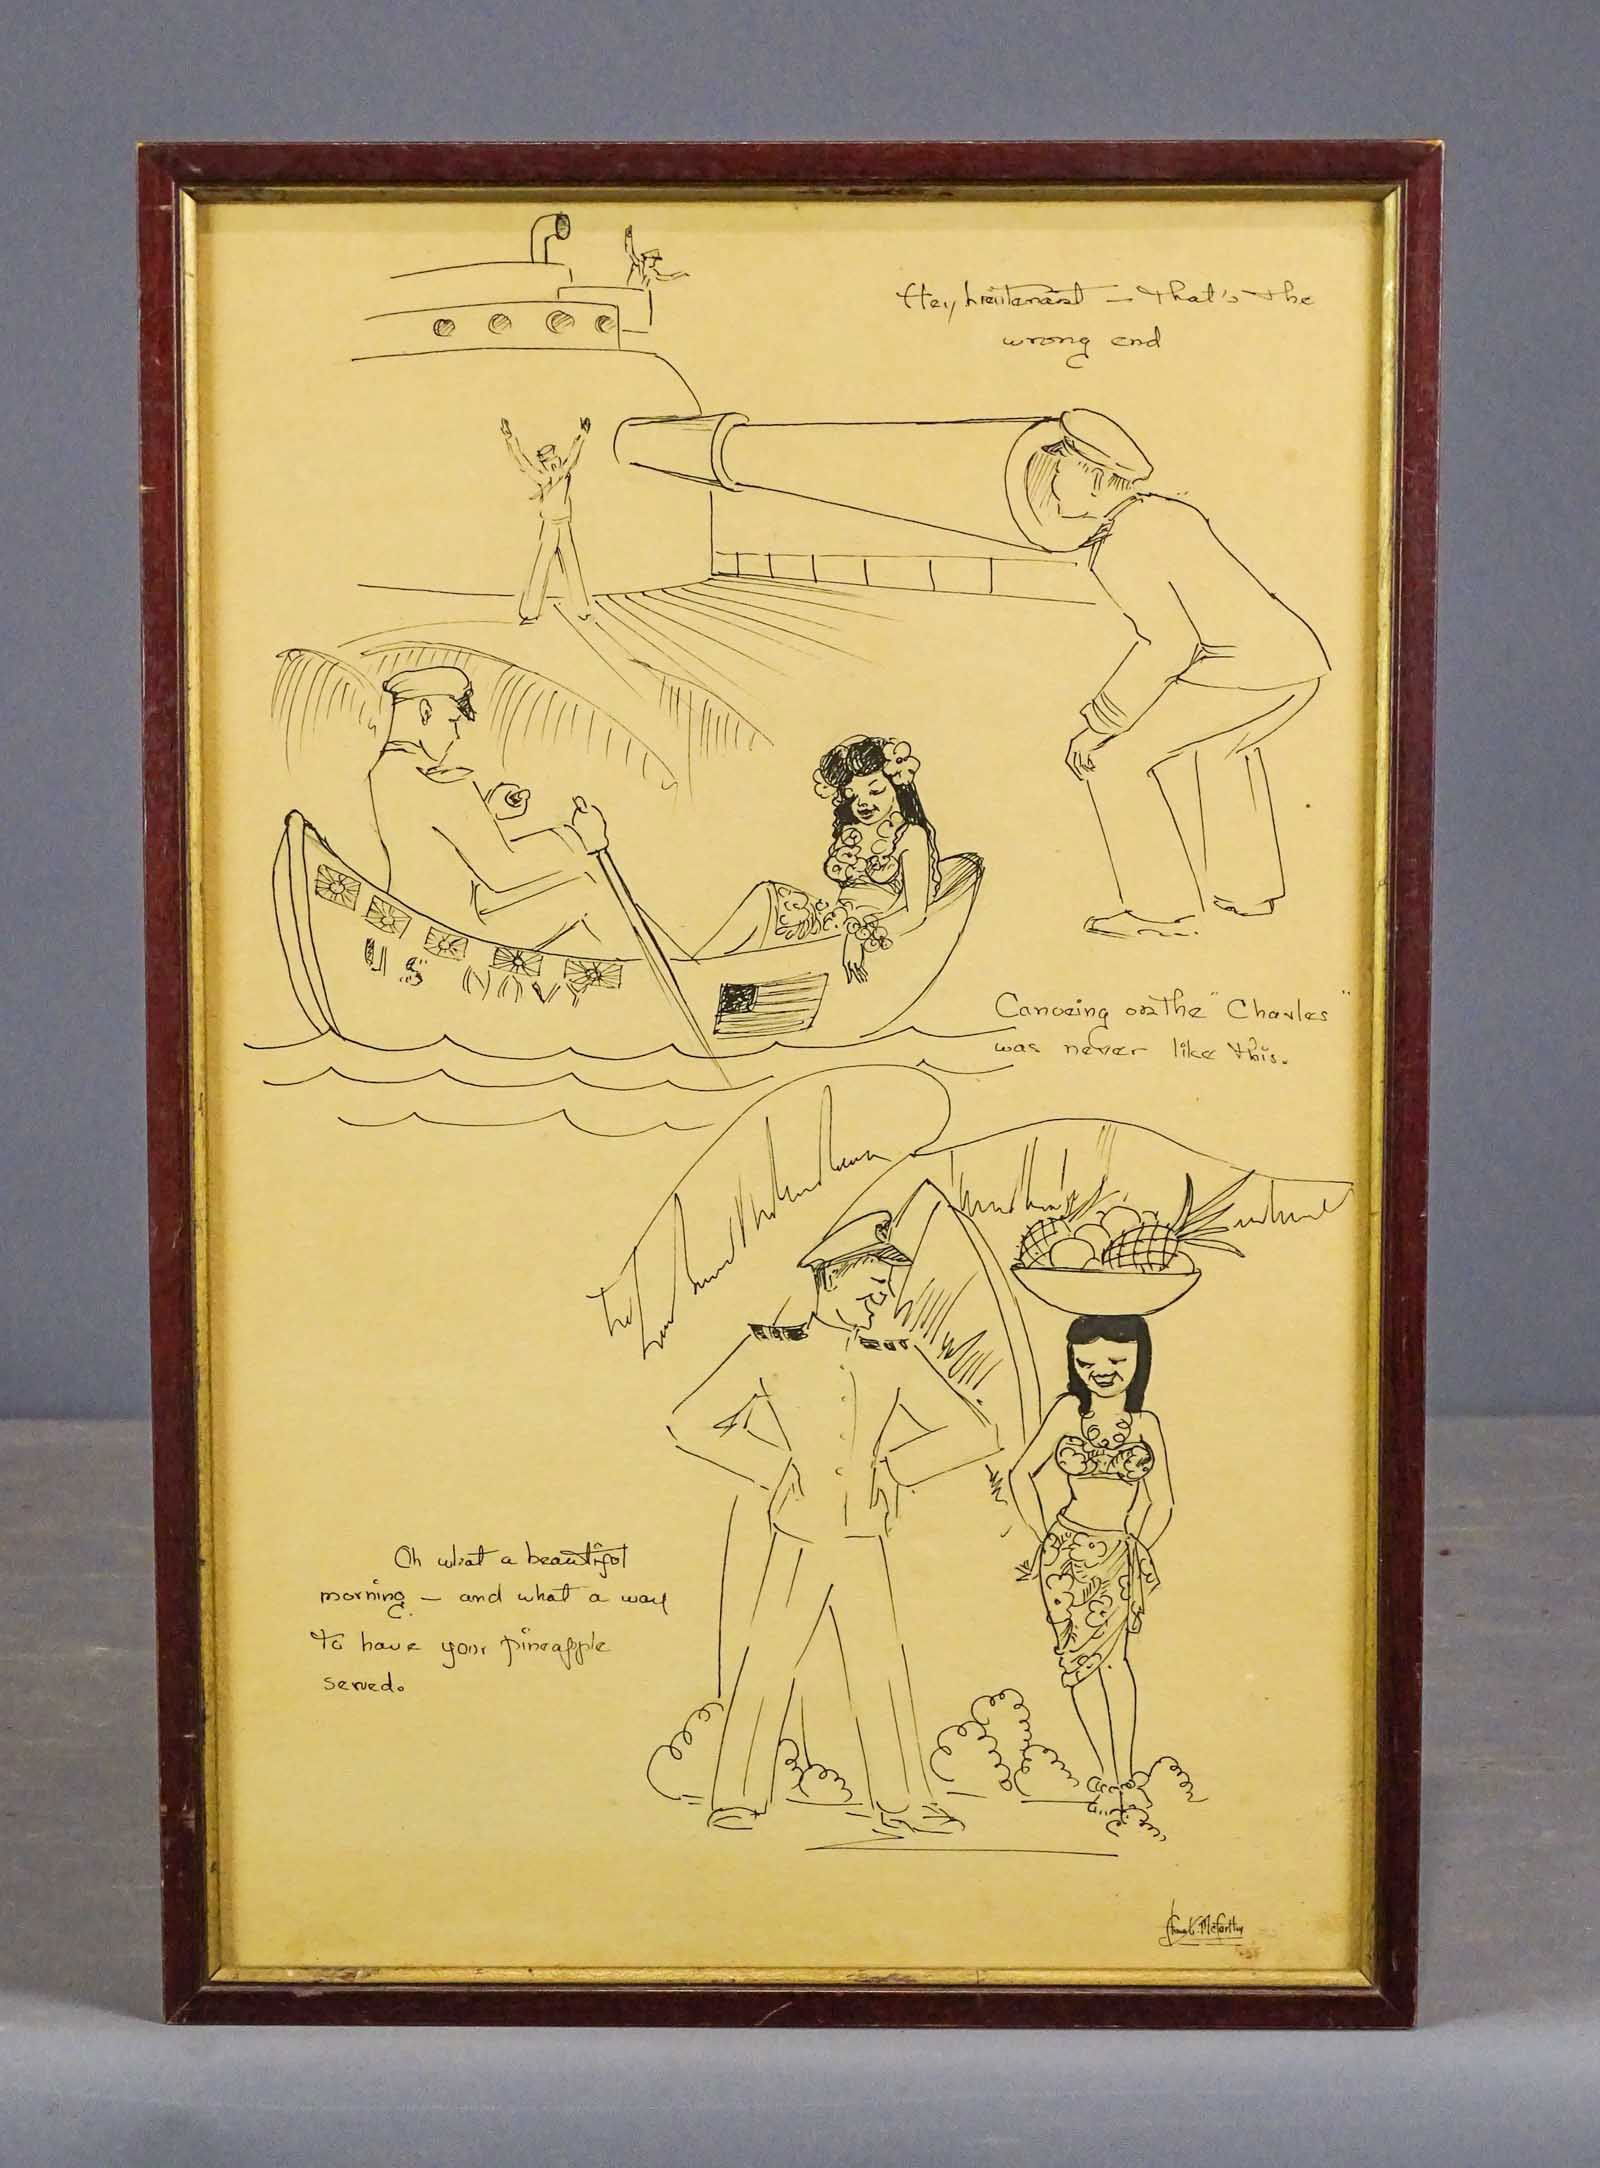 Hey Lieutenant — that's the
wrong end
U S NAVY
Canoeing on the "Charles"
was never like this.
Oh what a beautiful
morning — and what a way
to have your pineapple
served.
McCarthy